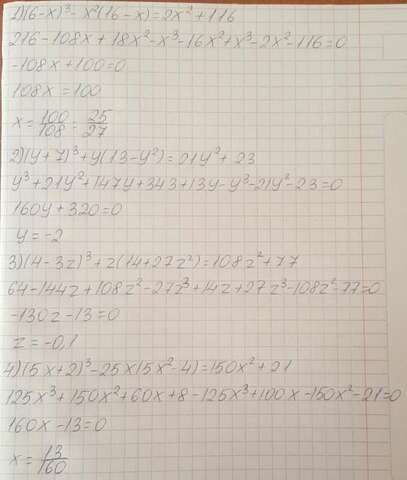 1)(6-x)³-x²(16-x)=2x²+116
216-108x+18x²-x³-16x²+x³-2x²-116=0
-108x+100=0
108x=100
x=100/108=25/27
2)(y+7)³+y(13-y²)=21y²+23
y³+21y²+147y+343+13y-y³-21y²-23=0
160y+320=0
y=-2
3)(4-3z)³+z(14+27z²)=108z²+77
64-144z+108z²-27z³+14z+27z³-108z²-77=0
-130z-13=0
z=-0,1
4)(5x+2)³-25x(5x²-4)=150x²+21
125x³+150x²+60x+8-125x³+100x-150x²-21=0
160x-13=0
x=13/160